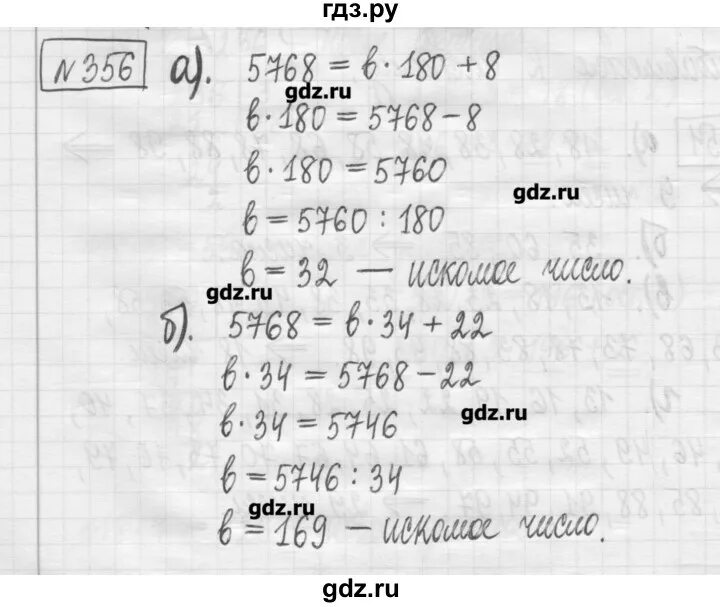 гдз.ру
№356 а). 5768 = в·180 + 8
gdz.ru
в·180 = 5768 - 8
в·180 = 5760
gdz.ru
в = 5760 : 180
в = 32 — искомое число.
gdz.ru
б). 5768 = в·34 + 22
в·34 = 5768 - 22
gdz.ru
в·34 = 5746
в = 5746 : 34
gdz.ru
в = 169 — искомое число.
gdz.ru